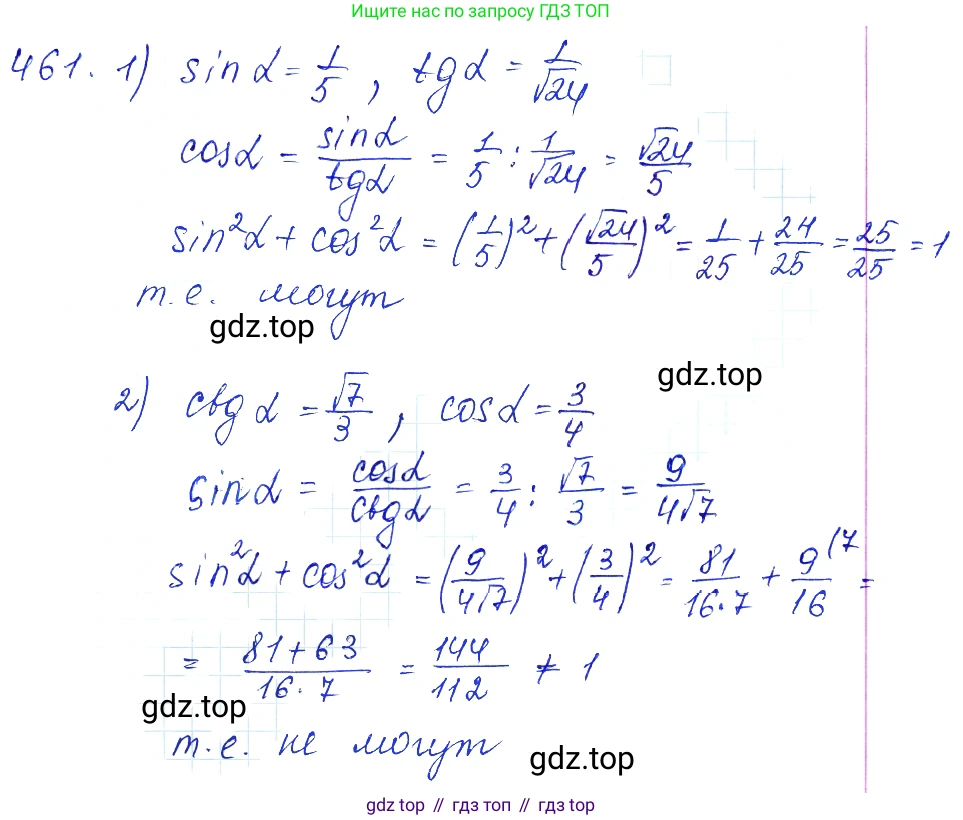 Ищите нас по запросу ГДЗ ТОП
461. 1) sin α = 1/5, tg α = 1/√24
cos α = sin α/tg α = 1/5 : 1/√24 = √24/5
sin²α + cos²α = (1/5)² + (√24/5)² = 1/25 + 24/25 = 25/25 = 1
т.е. могут
gdz.top
gdz.top
2) ctg α = √7/3, cos α = 3/4
sin α = cos α/ctg α = 3/4 : √7/3 = 9/4√7
sin²α + cos²α = (9/4√7)² + (3/4)² = 81/16·7 + 9/16 (7 =
= 81+63/16·7 = 144/112 ≠ 1
gdz.top
т.е. не могут
gdz.top
gdz top // гдз топ // gdz top